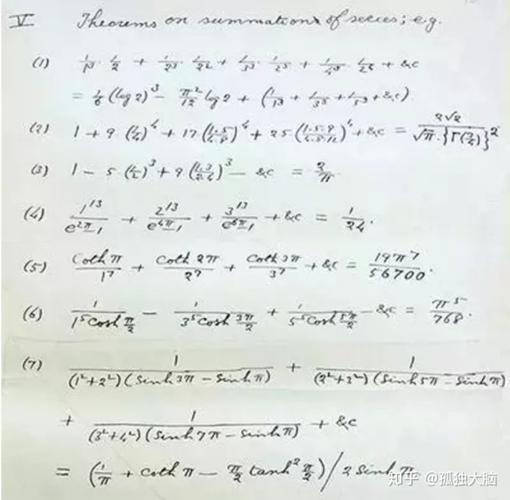 V Theorems on summation of series; e.g.
(1) 1/1³ · 1/2 + 1/2³ · 1/2² + 1/3³ · 1/2³ + 1/4³ · 1/2⁴ + &c
= 1/6 (log 2)³ − π²/12 log 2 + (1/1³ + 1/3³ + 1/5³ + &c).
(2) 1 + 9 (1/4)⁴ + 17 (1·5/4·8)⁴ + 25 (1·5·9/4·8·12)⁴ + &c = 2√2 / √π · {Γ(3/4)}²
(3) 1 − 5 (1/2)³ + 9 (1·3/2·4)³ − &c = 2/π.
(4) 1¹³/e^2π−1 + 2¹³/e^4π−1 + 3¹³/e^6π−1 + &c = 1/24.
(5) Coth π/1⁷ + Coth 2π/2⁷ + Coth 3π/3⁷ + &c = 19π⁷/56700.
(6) 1/1⁵ Cosh π/2 − 1/3⁵ Cosh 3π/2 + 1/5⁵ Cosh 5π/2 − &c = π⁵/768.
(7) 1/(1²+2²)(Sinh 3π − Sinh π) + 1/(2²+3²)(Sinh 5π − Sinh π)
+ 1/(3²+4²)(Sinh 7π − Sinh π) + &c
= (1/π + Coth π − π/2 tanh² π/2) / 2 Sinh π.
知乎 @孤独大脑